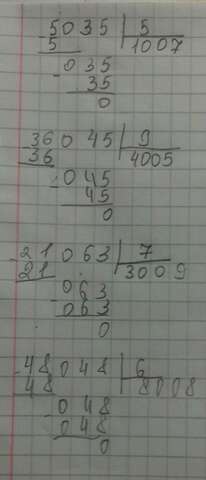 5035 | 5
-5 | 1007
-035
35
0
36045 | 9
-36 | 4005
-045
45
0
-21063 | 7
21 | 3009
-063
063
0
-48048 | 6
48 | 8008
-048
048
0